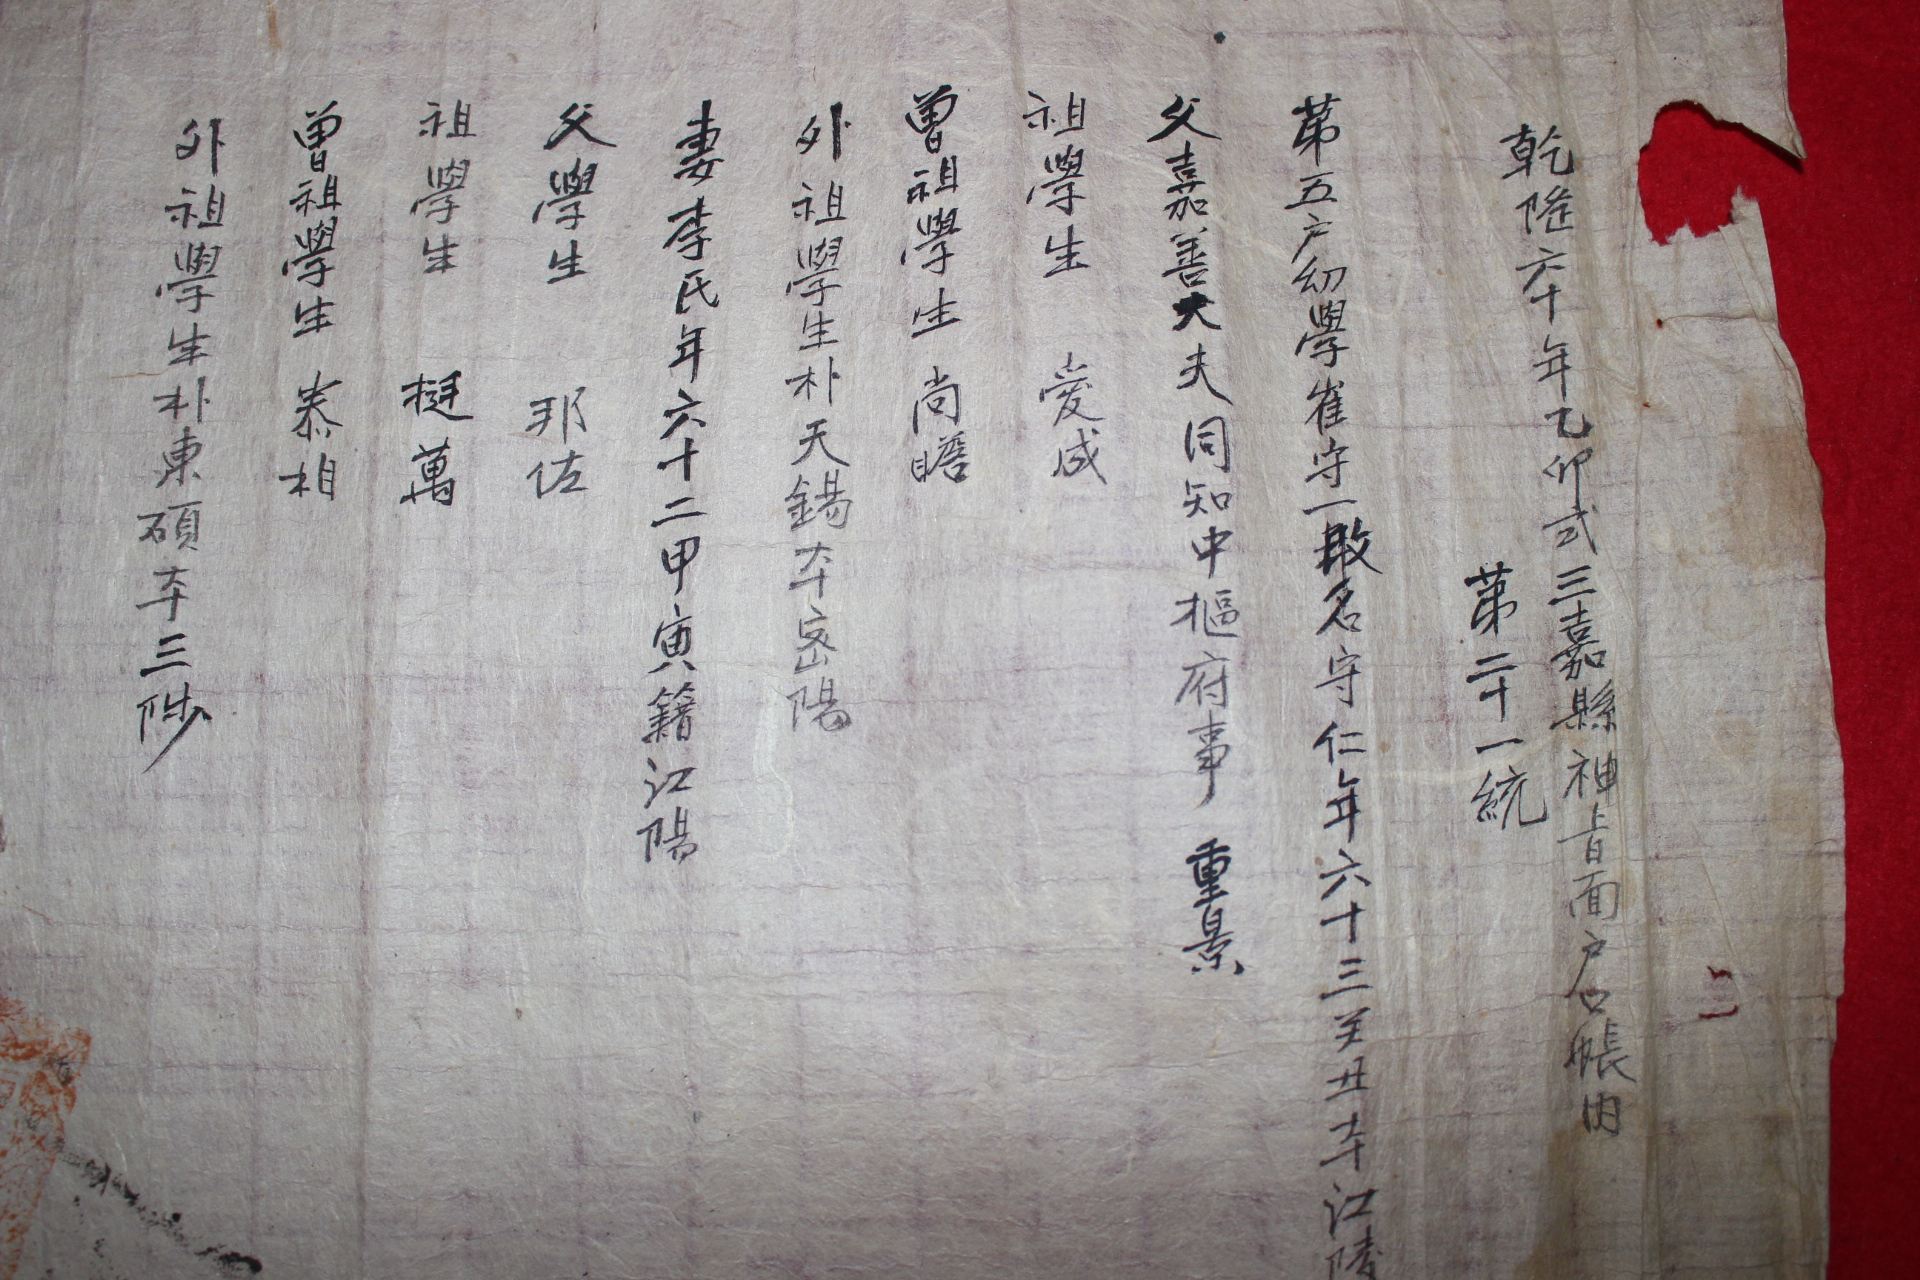 乾隆六十年乙卯式三嘉縣神旨面户口帳內
第二十一統
第五户幼學崔守一改名守仁年六十三癸丑本江陵
父嘉善大夫同知中樞府事 重景
祖學生 愛成
曾祖學生 尚瞻
外祖學生朴天錫本密陽
妻李氏年六十二甲寅籍江陽
父學生 邦佐
祖學生 挺萬
曾祖學生 泰相
外祖學生朴東碩本三陟